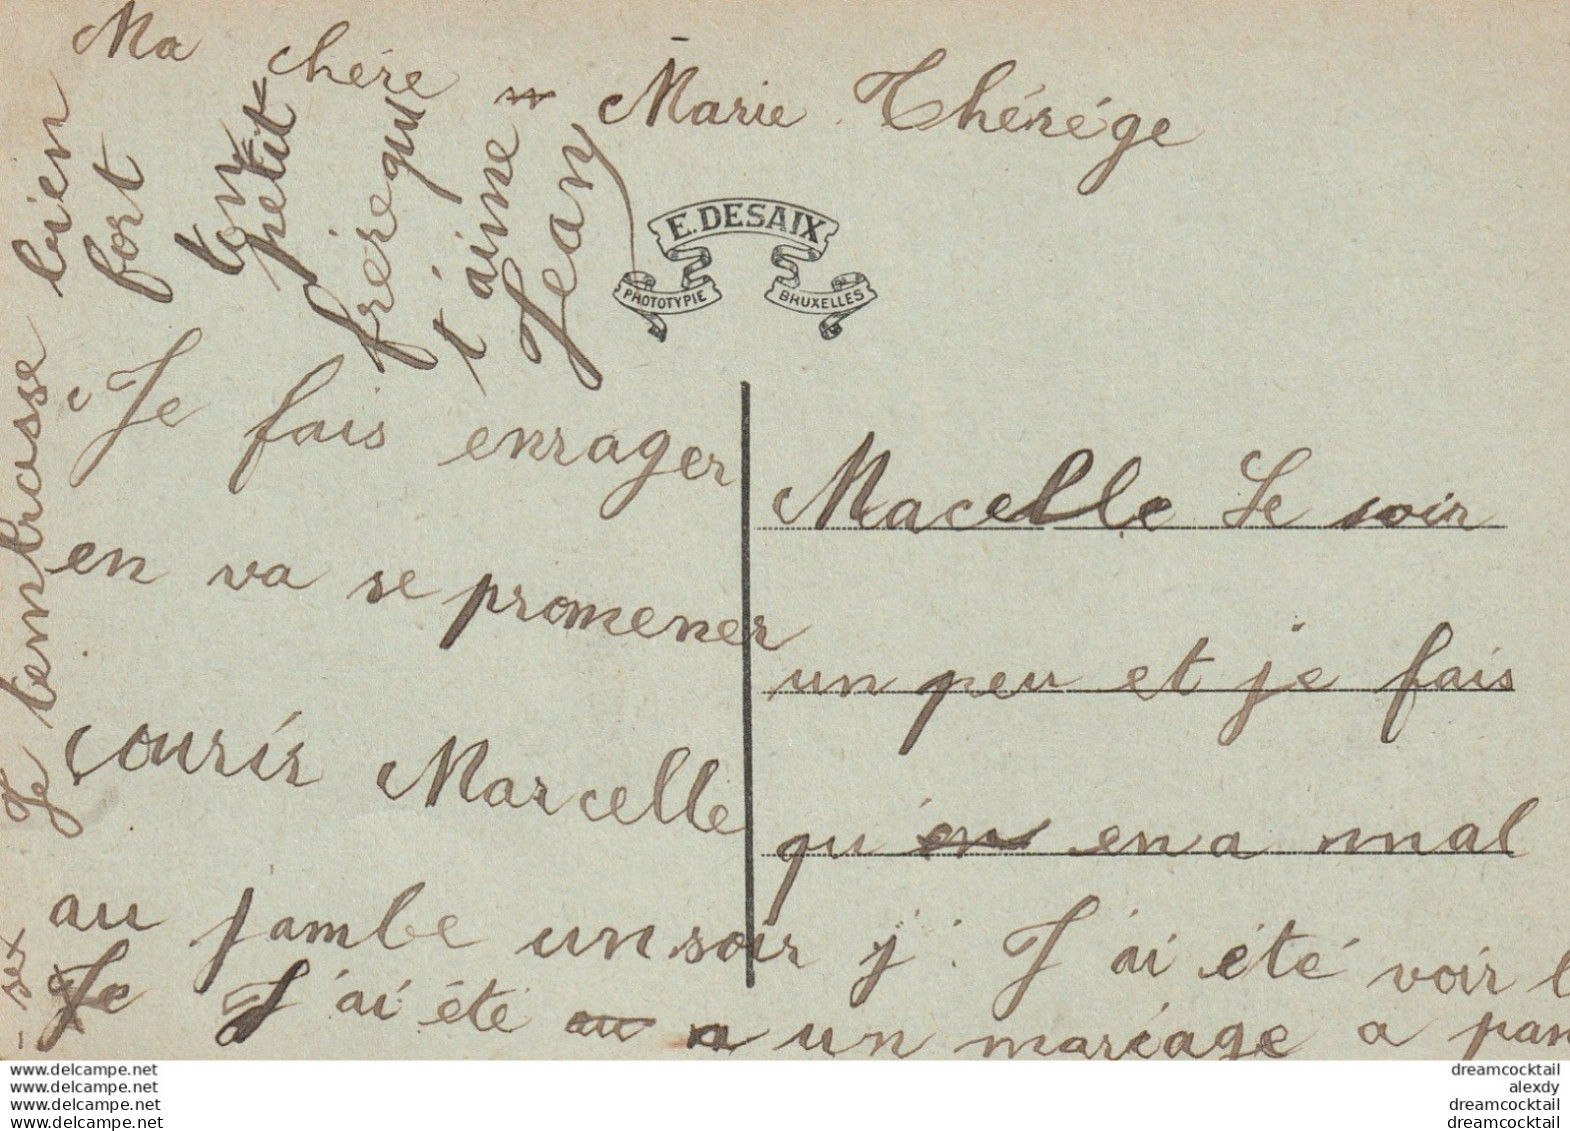 Ma chère Marie Thérége
E. DESAIX
PHOTOTYPIE BRUXELLES
Je fais enrager
Macelle Le soir
en va se promener
un peu et je fais
courir Marcelle
qu'en en a mal
au jambe un soir j'. J'ai été voir l
Je J'ai été au a un mariage a pan
- sex
Je tembrasse bien
fort
ton
petit
frère qui
t'aime
Jean
www.delcampe.net
www.delcampe.net
www.delcampe.net
www.delcampe.net
dreamcocktail
alexdy
dreamcocktail
dreamcocktail